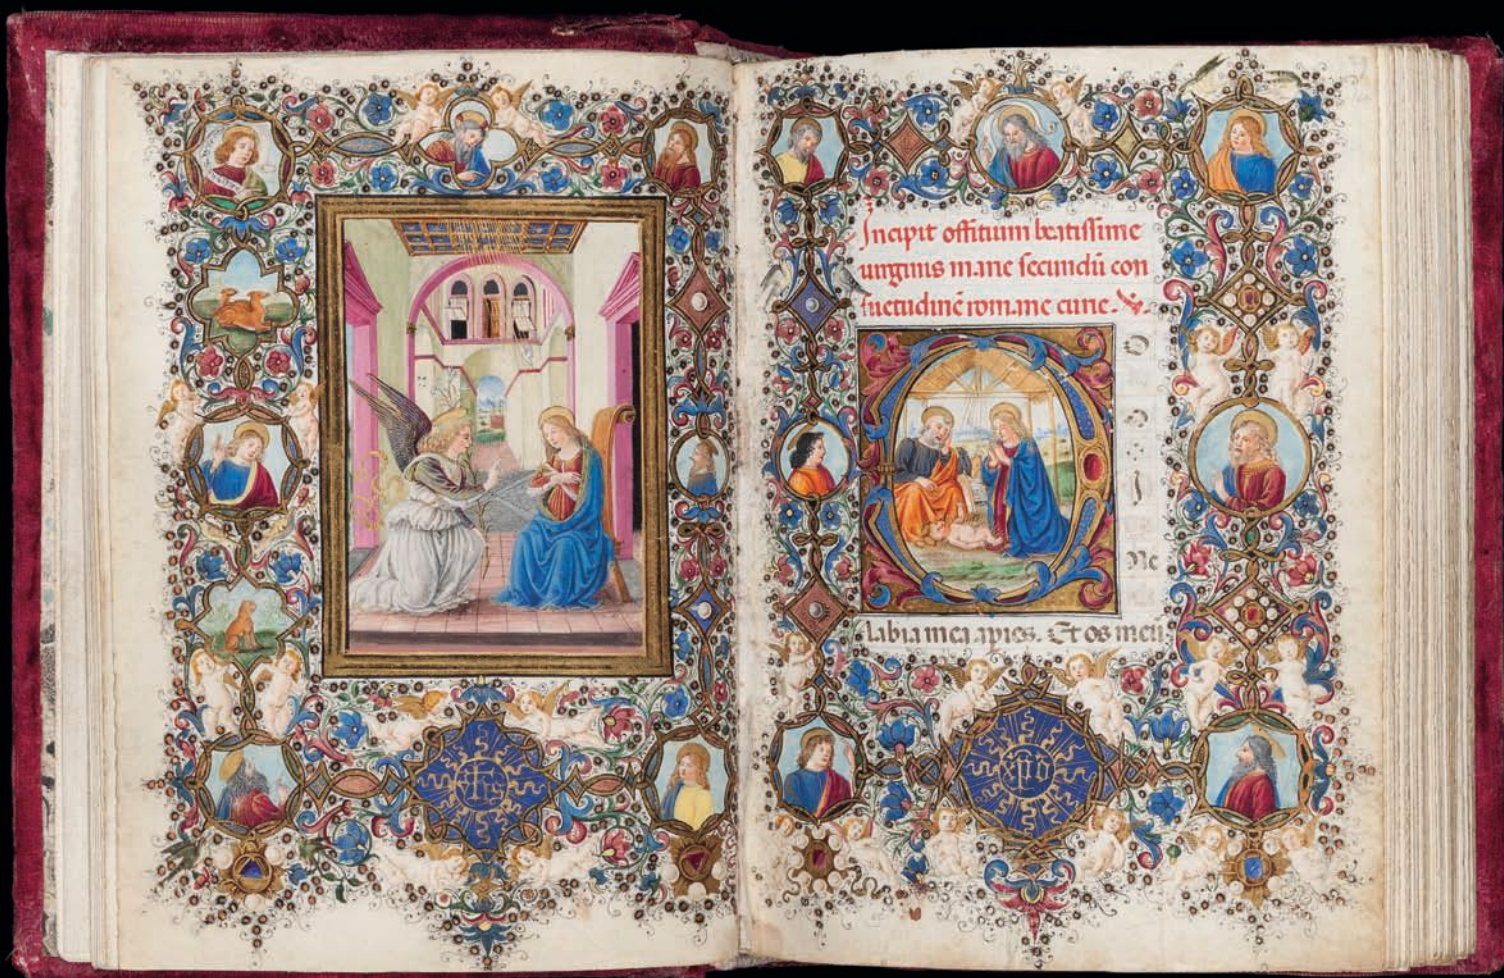 yhs
Incipit offitium beatissime
uirginis marie secundū con
suetudinē romane curie.
D
O
I
Ne
labia mea apies. Et os meū
xpō